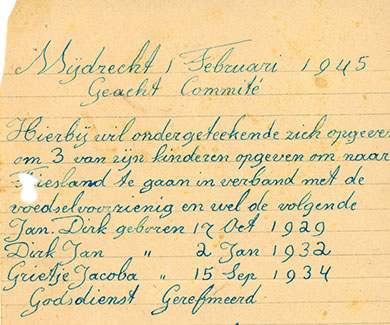 Mijdrecht 1 Februari 1945
Geacht Commité
Hierbij wil ondergeteekende zich opgeven
om 3 van zijn kinderen opgeven om naar
Friesland te gaan in verband met de
voedselvoorzienig en wel de volgende
Jan. Dirk geboren 17 Oct 1929
Dirk Jan " 2 Jan 1932
Grietje Jacoba " 15 Sep 1934
Godsdienst Gerefmeerd